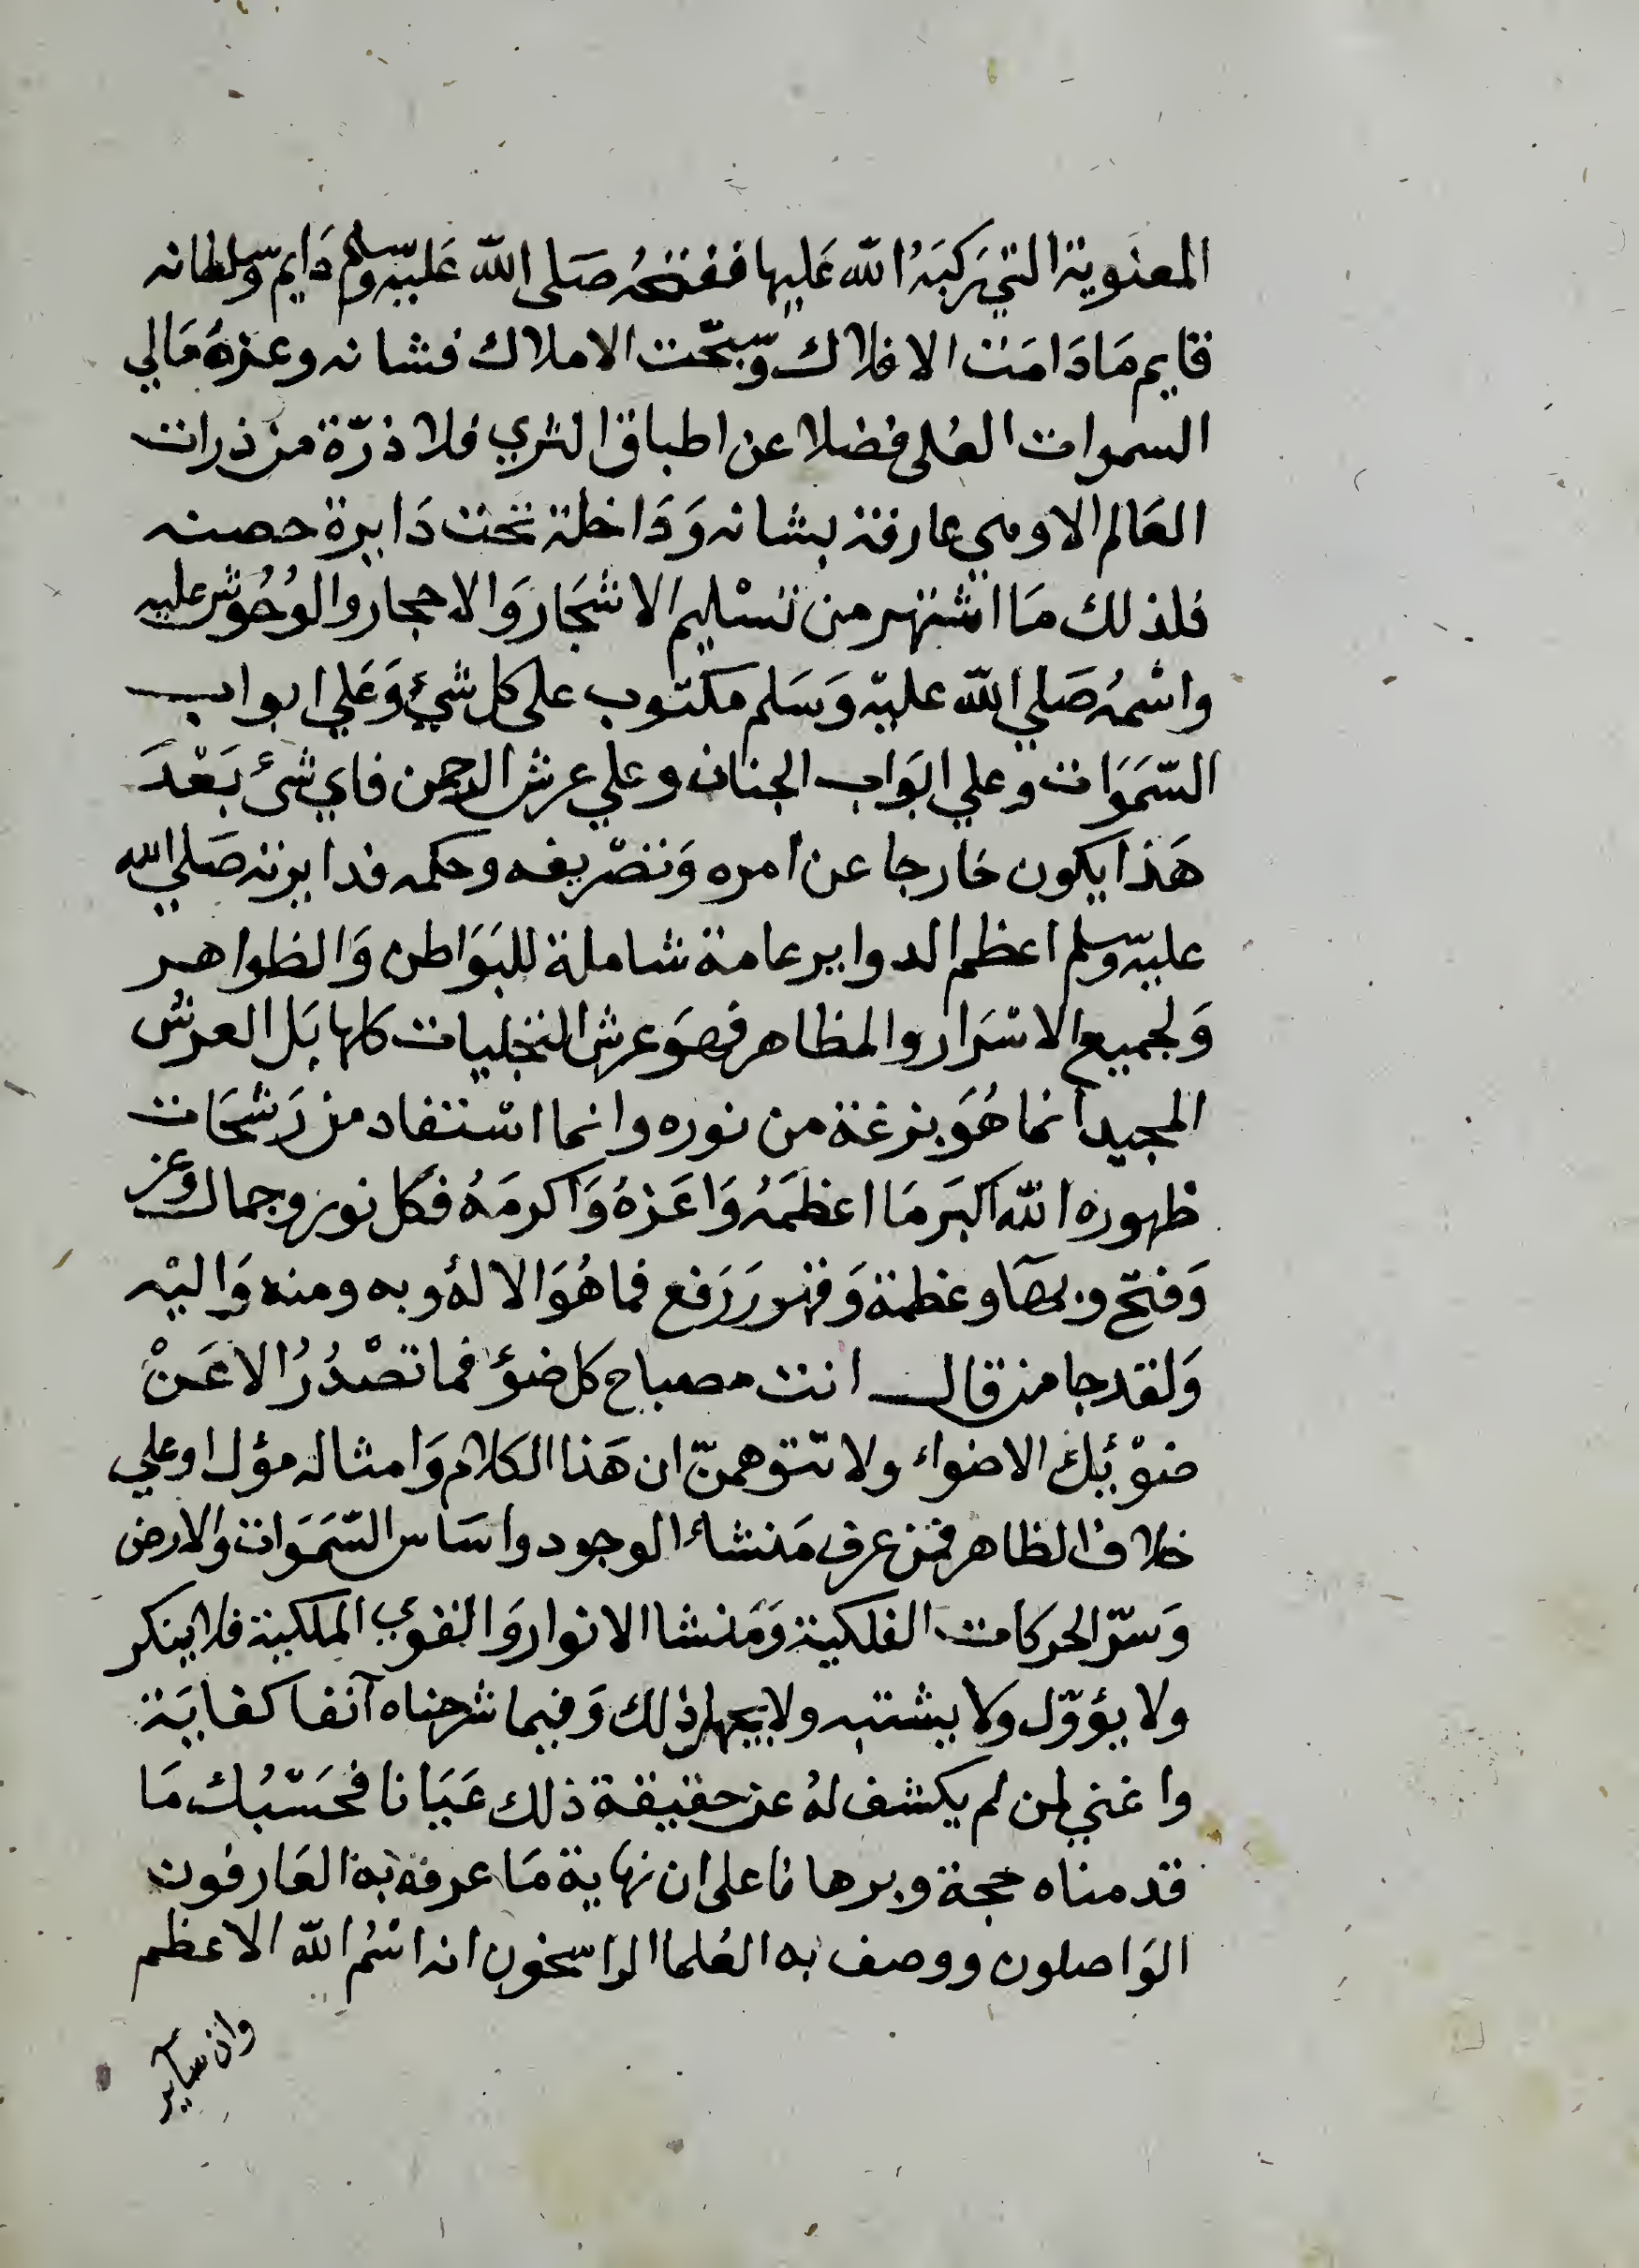 المعنوية التي ركبَهُ الله عَليها ففتحهُ صَلى الله عَليه وسلم دَايم وسلطانه
قايم مَا دَامَت الافلاك وسبّحت الاملاك فشانه وعزهُ مَالي
السموات العُلى فضلا عن اطباق الثري فلا ذرّة من ذرات
العَالم الا وهي عارفة بشانه وَدَاخلة تحت دَايرة حصنه
فلذلك مَا اشتهر من تسْليم الاشجَار وَالاحجار والوُحُوش عليه
واسْمهُ صَلي الله عليه وَسَلم مكتوب على كل شيءٍ وَعَلي ابواب
السّمَوَات وعلي ابوَاب الجنان وعلي عرش الرحمن فاي شئ بَعْدَ
هَذا يكون خَارجا عن امره وَتصْريفه وحكمه فدايرته صَلي الله
عليه وسلم اعظم الدواير عامة شاملة للبَوَاطن وَالظواهر
وَلجميع الاسْرَار والمظاهر فهوَ عرش التجليات كلها بَل العرش
المجيد انما هُوَ بزغة من نوره وانما اسْتفاد من رَشحَات
ظهوره الله اكبَر مَا اعظمَهُ وَاعَزهُ وَاكرمَهُ فكل نور وجمال وعز
وَفتح وبهَا وعظمة وَقهر وَرَفع فما هُوَ الا لهُ وبه ومنه وَاليْه
وَلقد جا من قال انت مصباح كل ضوءٍ فما تصْدُرُ الا عَنْ
ضوْئِكَ الاضواء ولا تتوهمنّ ان هَذا الكلام وَامثاله مؤل او علي
خلاف الظاهر فمن عرف مَنشأ الوجود واسَاس السّمَوَات والارض
وَسرّ الحركات الفلكية وَمَنشا الانوار وَالقوي الملكية فلا ينكر
ولا يؤوّل ولا يشتبه ولا يجهل ذلك وَفيما شرحناه آنفا كفايَة
واغني لمن لم يكشف لهُ عن حقيقة ذلك عَيَانا فحَسْبُك مَا
قدمناه حجة وبرهانا على ان نهاية مَا عرفه به العَارفون
الوَاصلون ووصف به العُلما الراسخون انه اسْمُ الله الاعظم
وان سآير